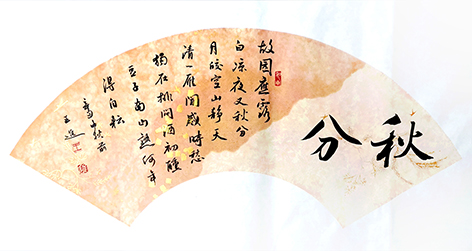 秋分
故园應露
白凉夜又秋分
月皎空山静天
清一雁闻感時愁
獨在排闷酒初醺
豆子南山熟何年
得自耘